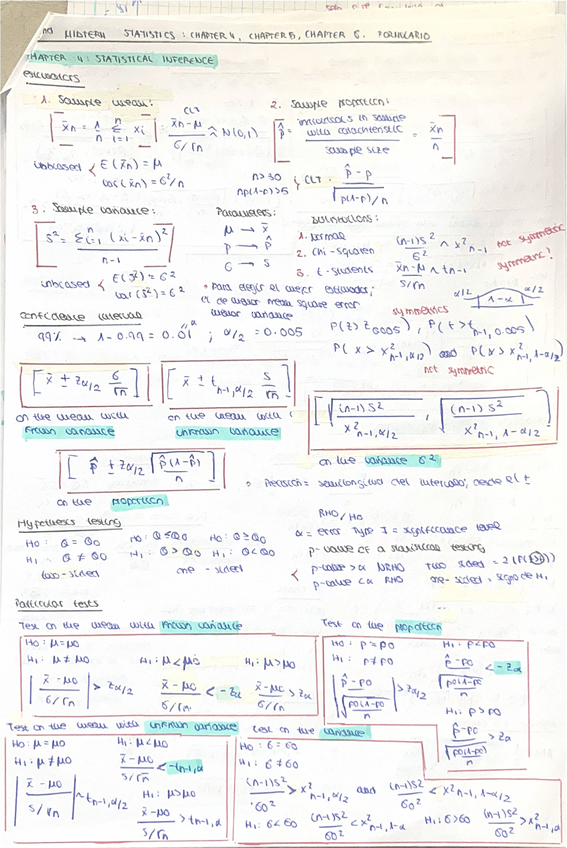 nd MIDTERM STATISTICS: CHAPTER 4, CHAPTER 5, CHAPTER 6. FORMULARIO
CHAPTER 4: STATISTICAL INFERENCE
ESTIMATORS
1. Sample mean:
[ x̄n = 1/n Σ(i=1, n) xi ] CLT (x̄n - μ)/(σ/√n) ≈ N(0,1)
unbiased < E(x̄n) = μ
var(x̄n) = σ²/n
2. Sample proportion:
[ p̂ = individuals in sample with characteristic / sample size = x̄n/n ]
n>30
np(1-p)>5
CLT: (p̂ - p)/√(p(1-p)/n)
3. Sample variance:
[ S² = Σ(i=1, n) (xi - x̄n)² / (n-1) ]
unbiased < E(S²) = σ²
var(S²) = σ²
Parameters:
μ → x̄
p → p̂
σ → S
Distributions:
1. Normal
2. Chi-squared (n-1)S²/σ² ~ x²n-1 not symmetric
3. t-students (x̄n - μ)/(S/√n) ~ tn-1 symmetric!
• Para elegir el mejor estimador,
el de menor mean square error
menor variance
α/2 1-α α/2
Confidence interval
99% → 1-0.99 = 0.01 α ; α/2 = 0.005
symmetrics
P(z> z0.005), P(t> tn-1, 0.005)
P(x > x²n-1, α/2) and P(x> x²n-1, 1-α/2)
not symmetric
[ x̄ ± zα/2 σ/√n ]
on the mean with
known variance
[ x̄ ± tn-1, α/2 S/√n ]
on the mean with
unknown variance
[ √((n-1)S²/x²n-1, α/2) , √((n-1)S²/x²n-1, 1-α/2) ]
on the variance σ²
[ p̂ ± zα/2 √(p̂(1-p̂)/n) ]
on the proportion
• Precision = semilongitud del intervalo, desde el ±
Hypothesis testing
H0: θ = θ0 H0: θ≤θ0 H0: θ≥θ0
H1: θ ≠ θ0 H1: θ > θ0 H1: θ<θ0
two-sided one-sided
RHO / H0
α = error Type I = significance level
p-value of a statistical testing
p-value >α NRHO two sided = 2(P( ))
p-value <α RHO one-sided = signo de H1
Particular tests
Test on the mean with known variance
H0: μ=μ0
H1: μ ≠ μ0 H1: μ<μ0 H1: μ>μ0
|(x̄ - μ0)/(σ/√n)| > zα/2 (x̄-μ0)/(σ/√n) < -zα (x̄-μ0)/(σ/√n) > zα
Test on the proportion
H0: p = p0 H1: p<p0
H1: p≠p0 (p̂-p0)/√(p0(1-p0)/n) < -zα
|(p̂-p0)/√(p0(1-p0)/n)| > zα/2
H1: p > p0
(p̂-p0)/√(p0(1-p0)/n) > zα
Test on the mean with unknown variance
H0: μ=μ0 H1: μ<μ0
H1: μ≠μ0 (x̄ - μ0)/(S/√n) < -tn-1, α
|(x̄ - μ0)/(S/√n)| ~ tn-1, α/2
H1: μ>μ0
(x̄ - μ0)/(S/√n) > tn-1, α
test on the variance
H0: σ = σ0
H1: σ ≠ σ0
(n-1)S²/σ0² > x²n-1, α/2 and (n-1)S²/σ0² < x²n-1, 1-α/2
H1: σ< σ0 (n-1)S²/σ0² < x²n-1, 1-α H1: σ>σ0 (n-1)S²/σ0² > x²n-1, α